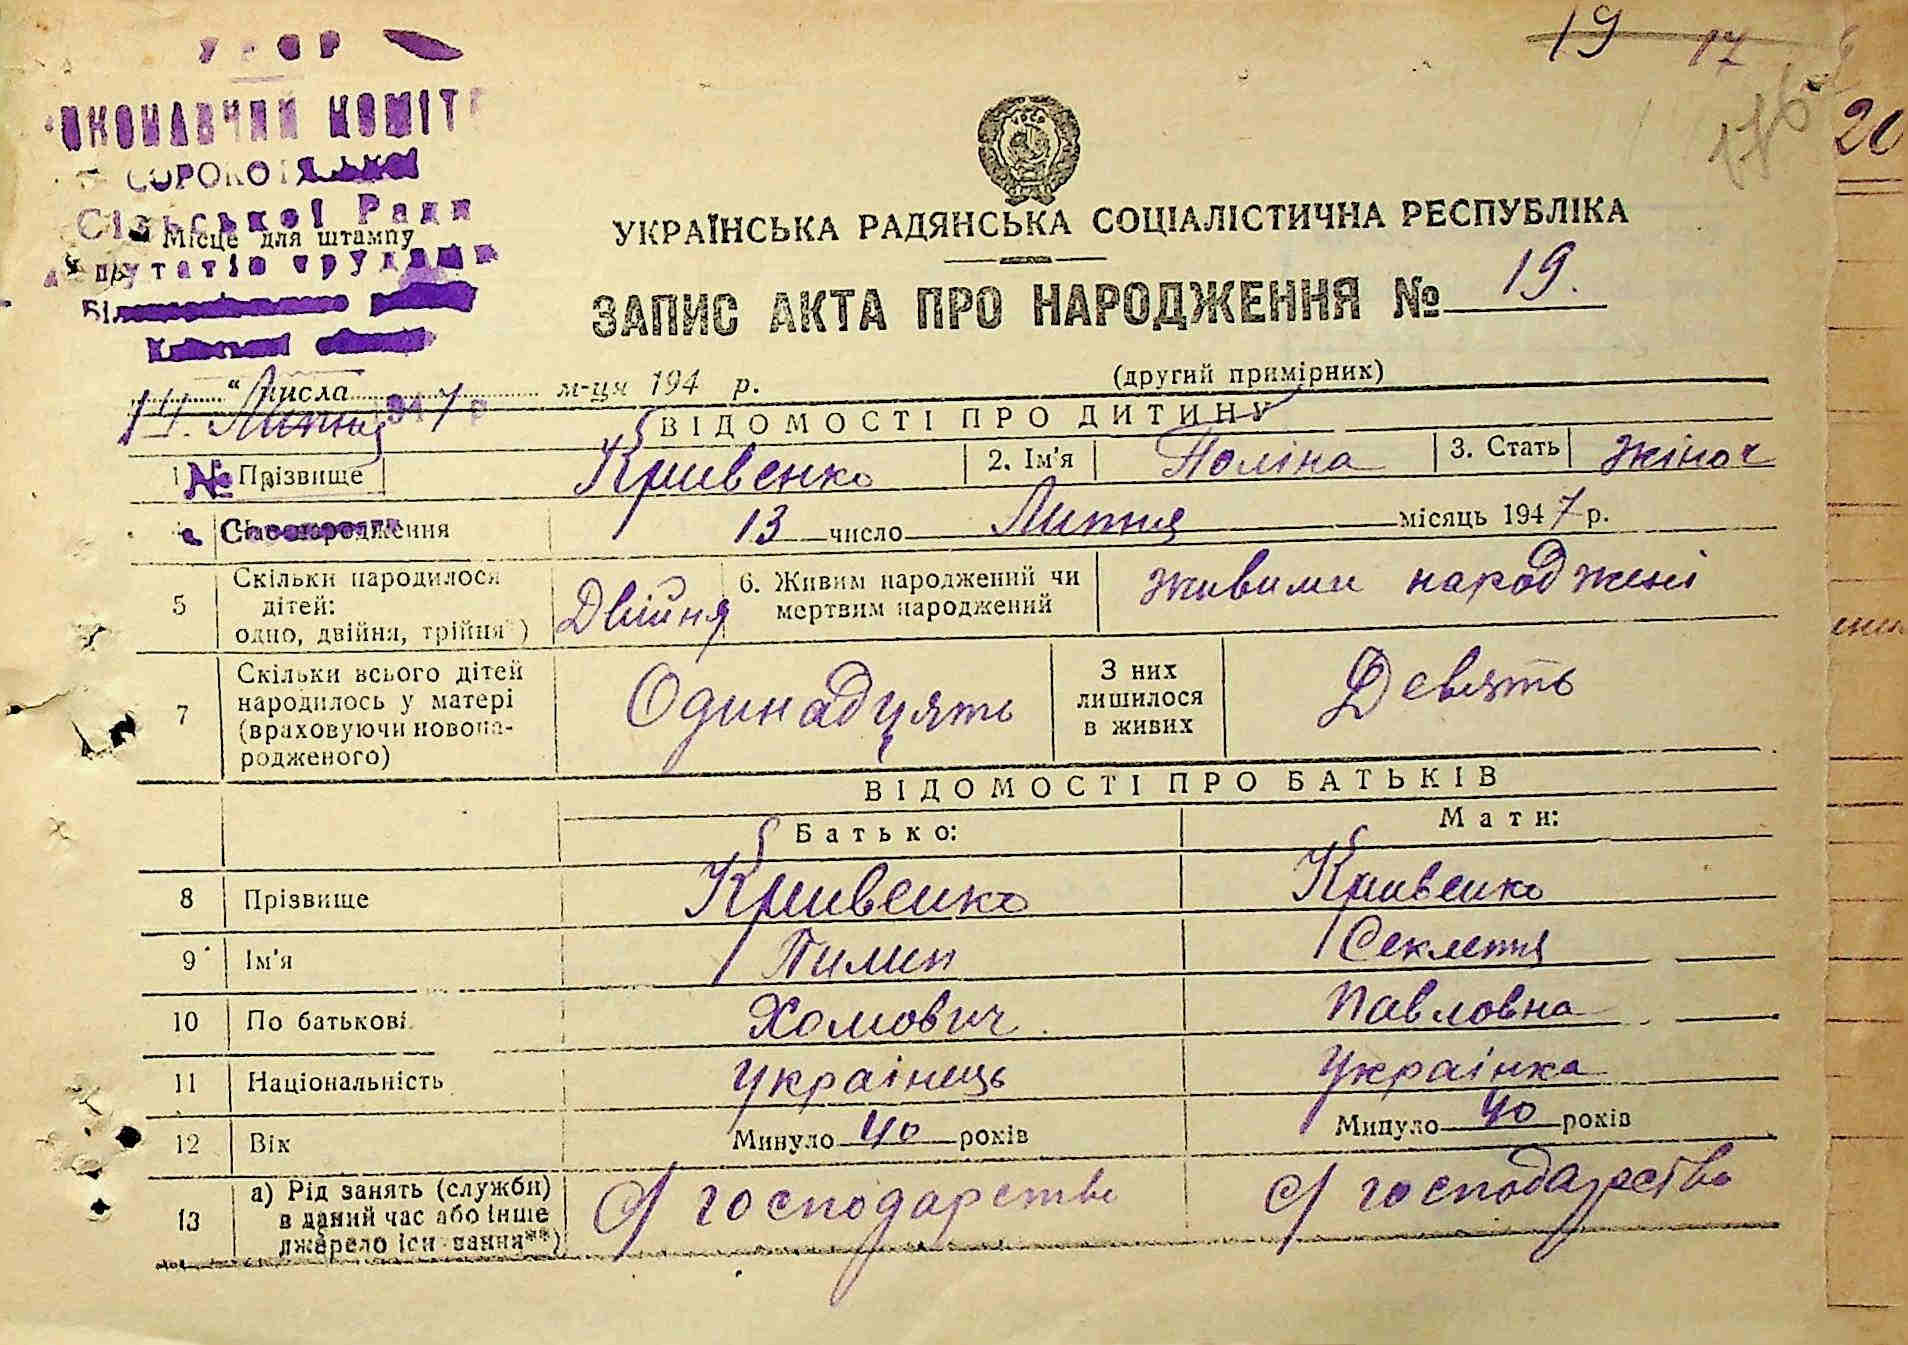 19 17
176
20
УРСР
ВИКОНАВЧИЙ КОМІТЕТ
СОРОКОТЯ
Сільської Ради
Місце для штампу
депутатів трудящих
УКРАЇНСЬКА РАДЯНСЬКА СОЦІАЛІСТИЧНА РЕСПУБЛІКА
ЗАПИС АКТА ПРО НАРОДЖЕННЯ № 19.
„ “ числа м-ця 194 р.
(другий примірник)
14. Липня 1947 р
ВІДОМОСТІ ПРО ДИТИНУ
1 Прізвище Кривенко 2. Ім'я Поліна 3. Стать жіноч
Час народження 13 число Липня місяць 1947 р.
5 Скільки народилося дітей: одно, двійня, трійня*) Двійня 6. Живим народжений чи мертвим народжений живими народжені
7 Скільки всього дітей народилось у матері (враховуючи новонародженого) Одинадцять З них лишилося в живих Девять
ВІДОМОСТІ ПРО БАТЬКІВ
Батько: Мати:
8 Прізвище Кривенко Кривенко
9 Ім'я Пилип Секлетія
10 По батькові Хомович Павловна
11 Національність Українець Українка
12 Вік Минуло 40 років Минуло 40 років
13 а) Рід занять (служби) в даний час або інше джерело існування**) С/господарство С/господарство